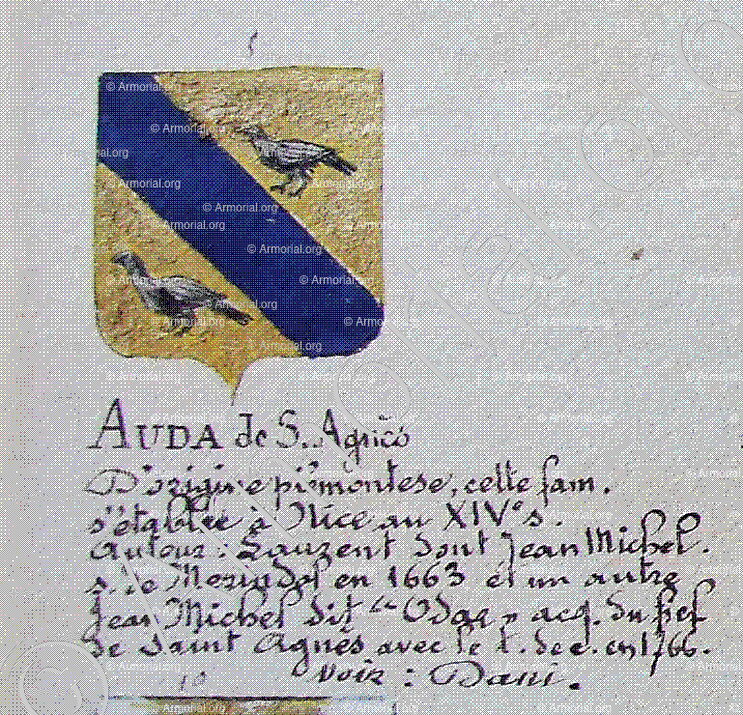 AUDA de S. Agnès
D'origine piémontese, cette fam.
s'établie à Nice au XIVe s.
Auteur : Laurent dont Jean Michel.
s. de en 1663 et un autre
Jean Michel dit "Odae" acq. du fief
de Saint Agnès avec le t. de c. en 1766.
Voir : Dani.
© Armorial.org